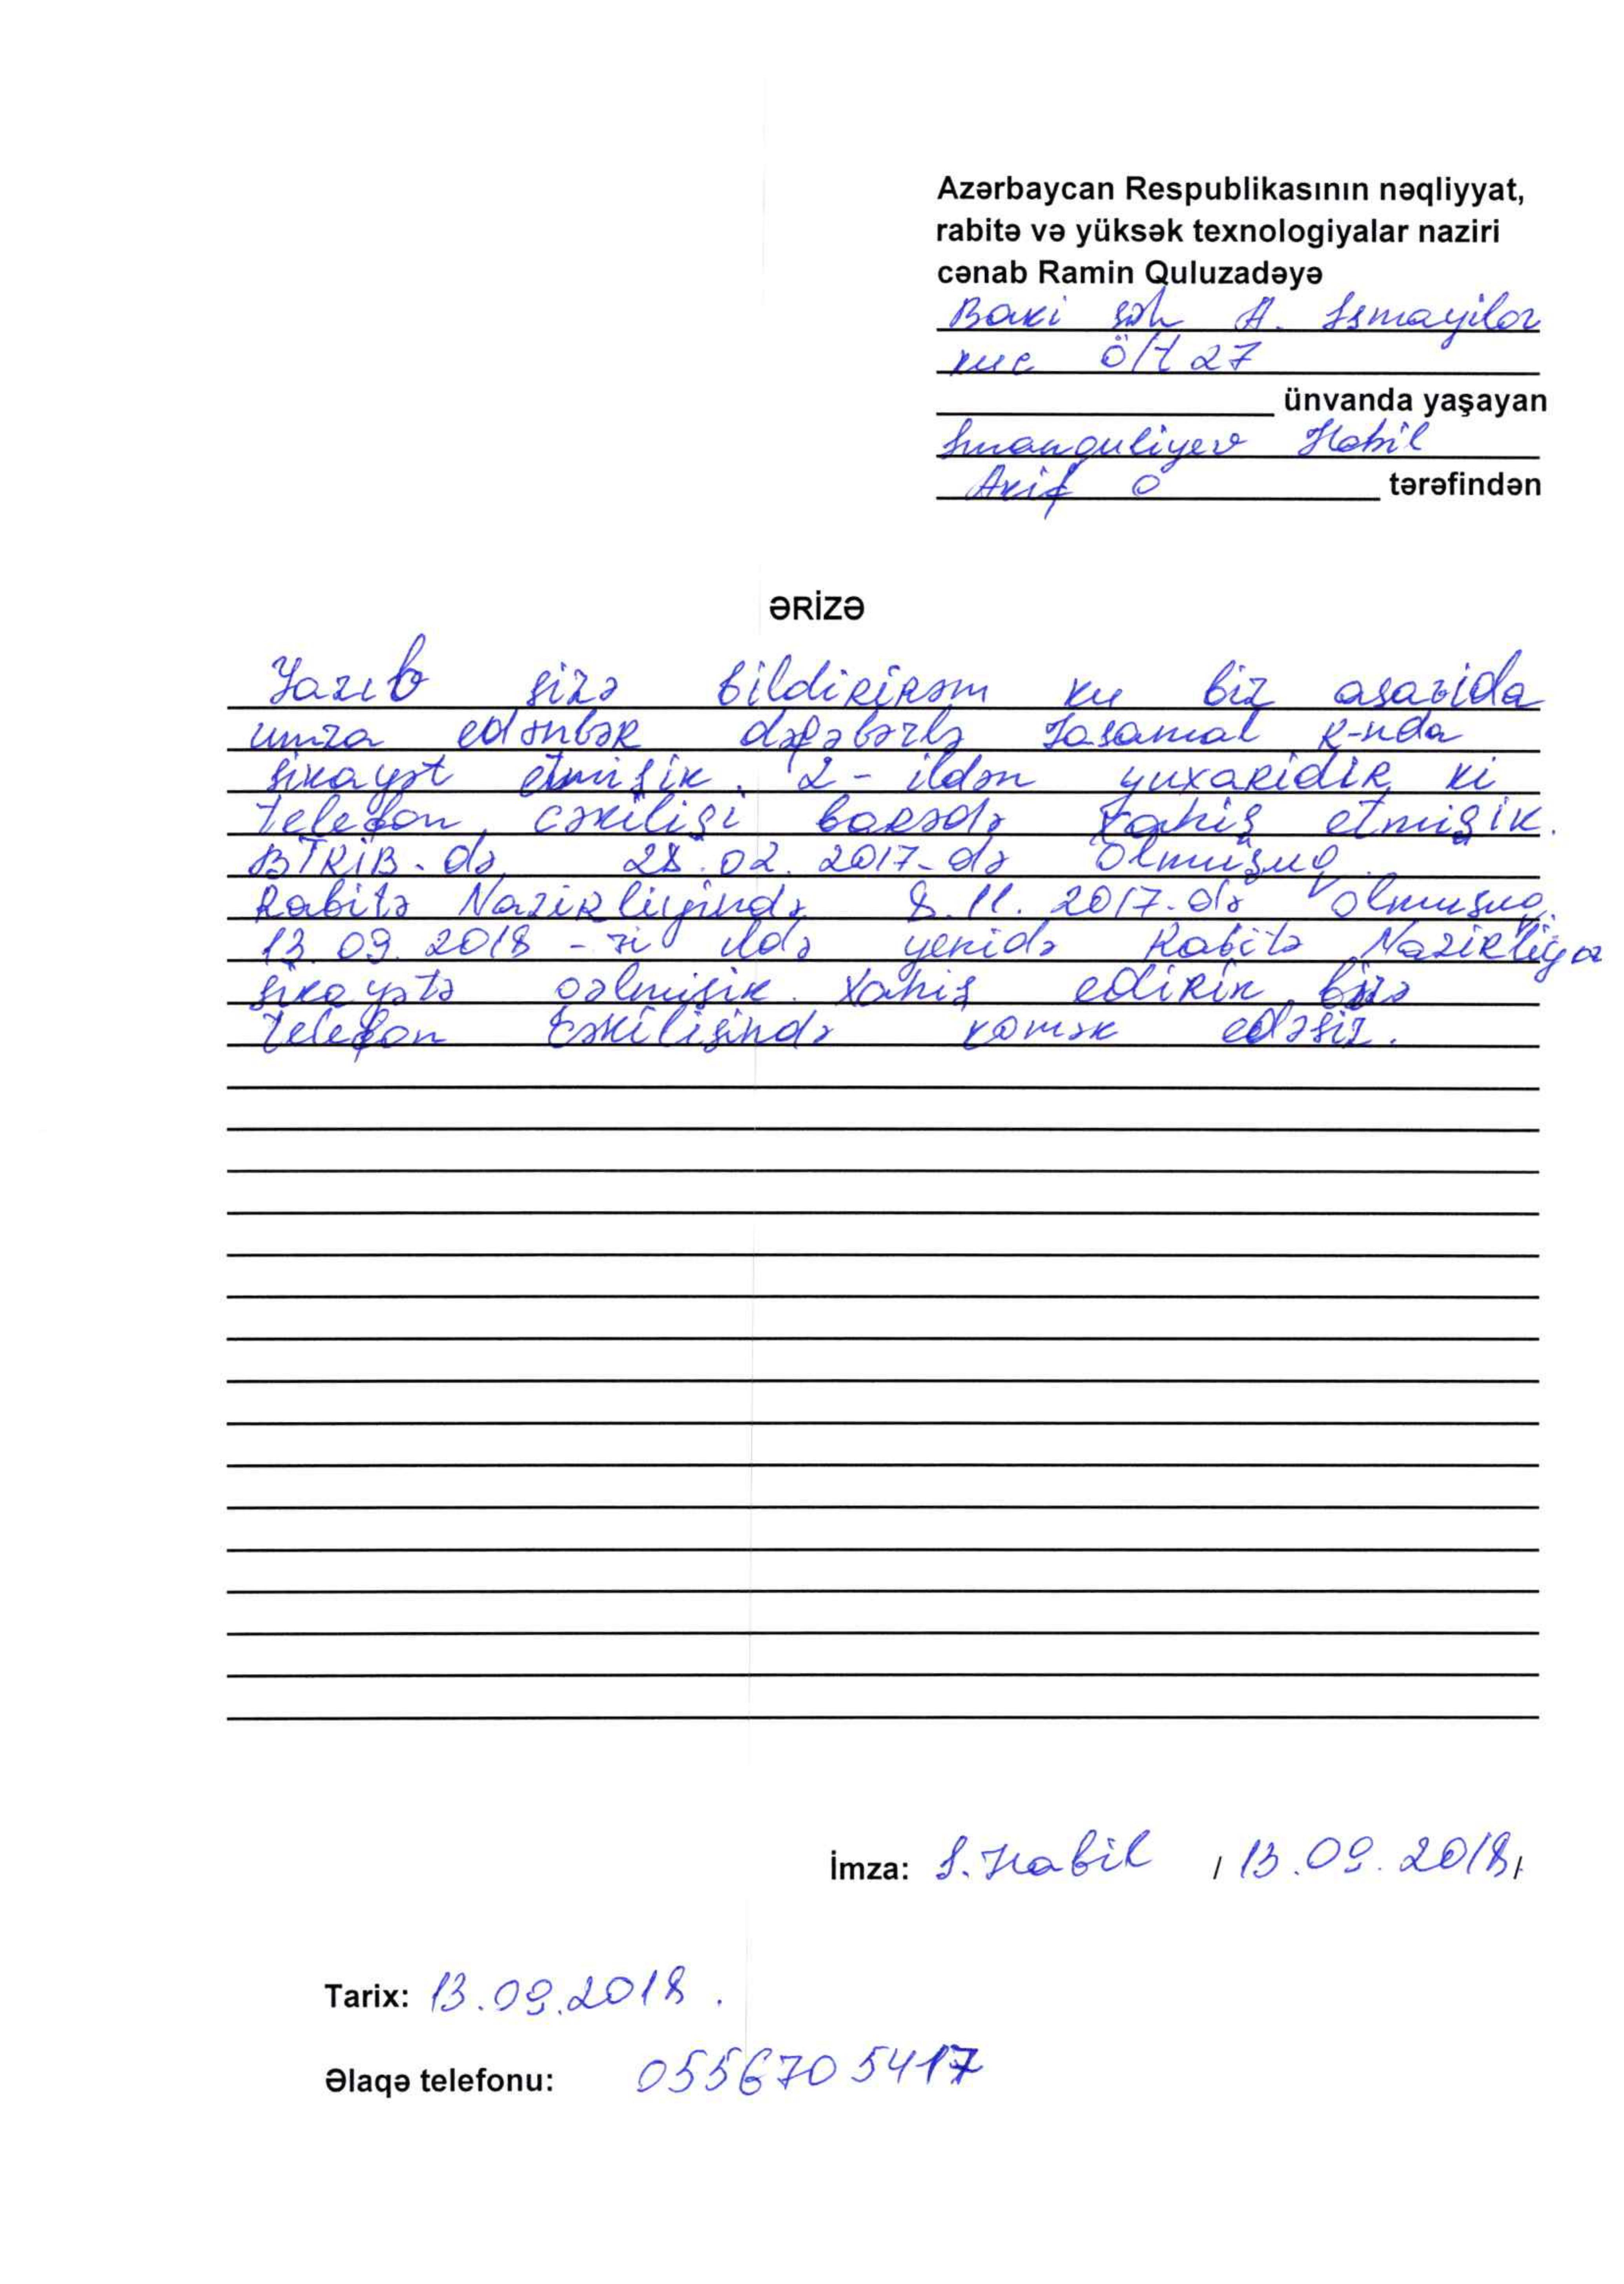 Azərbaycan Respublikasının nəqliyyat,
rabitə və yüksək texnologiyalar naziri
cənab Ramin Quluzadəyə
Baki şəh A. Ismayilov
kuc 27
ünvanda yaşayan
Imanquliyev Habil
Akif O
tərəfindən
ƏRİZƏ
Yazıb sizə bildirirəm ku biz asavida
umza edənlər dəfələrlə Yasamal R-nda
şikayət etmişik. 2-ildən yuxaridir ki
telefon cəkilişi barədə xahiş etmişik.
BTRİB-də 28.02.2017-də olmuşuq
Rabitə Nazirliyində 8.11.2017-də olmuşuq.
13.09.2018-zi ildə yenidə Rabitə Nazirliyə
şikayətə gəlmişik. Xahiş edirik bizə
telefon çəkilişində kömək edəsiz.
İmza: I. Habil / 13.09.2018/
Tarix: 13.09.2018.
Əlaqə telefonu: 0556705417